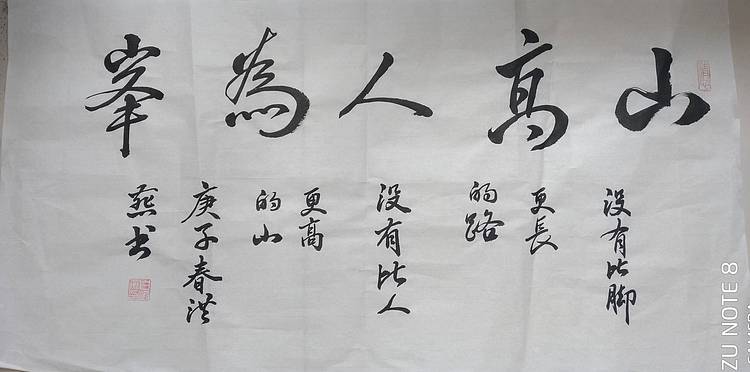 山高人為峯
没有比脚
更長
的路
没有比人
更高
的山
庚子春洪
燕书
ZU NOTE 8